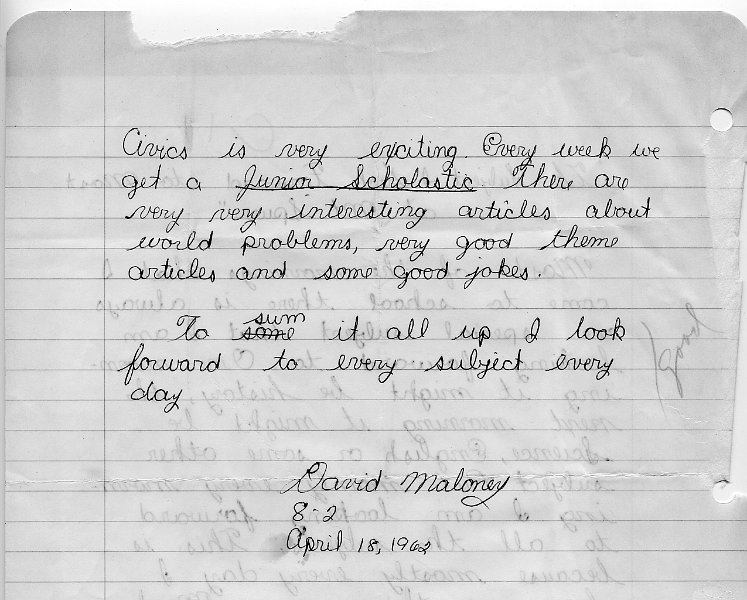 Civics is very exciting. Every week we
get a Junior Scholastic. There are
very very interesting articles about
world problems, very good theme
articles and some good jokes.
To some sum it all up I look
forward to every subject every
day
good
David Maloney
8-2
April 18, 1962